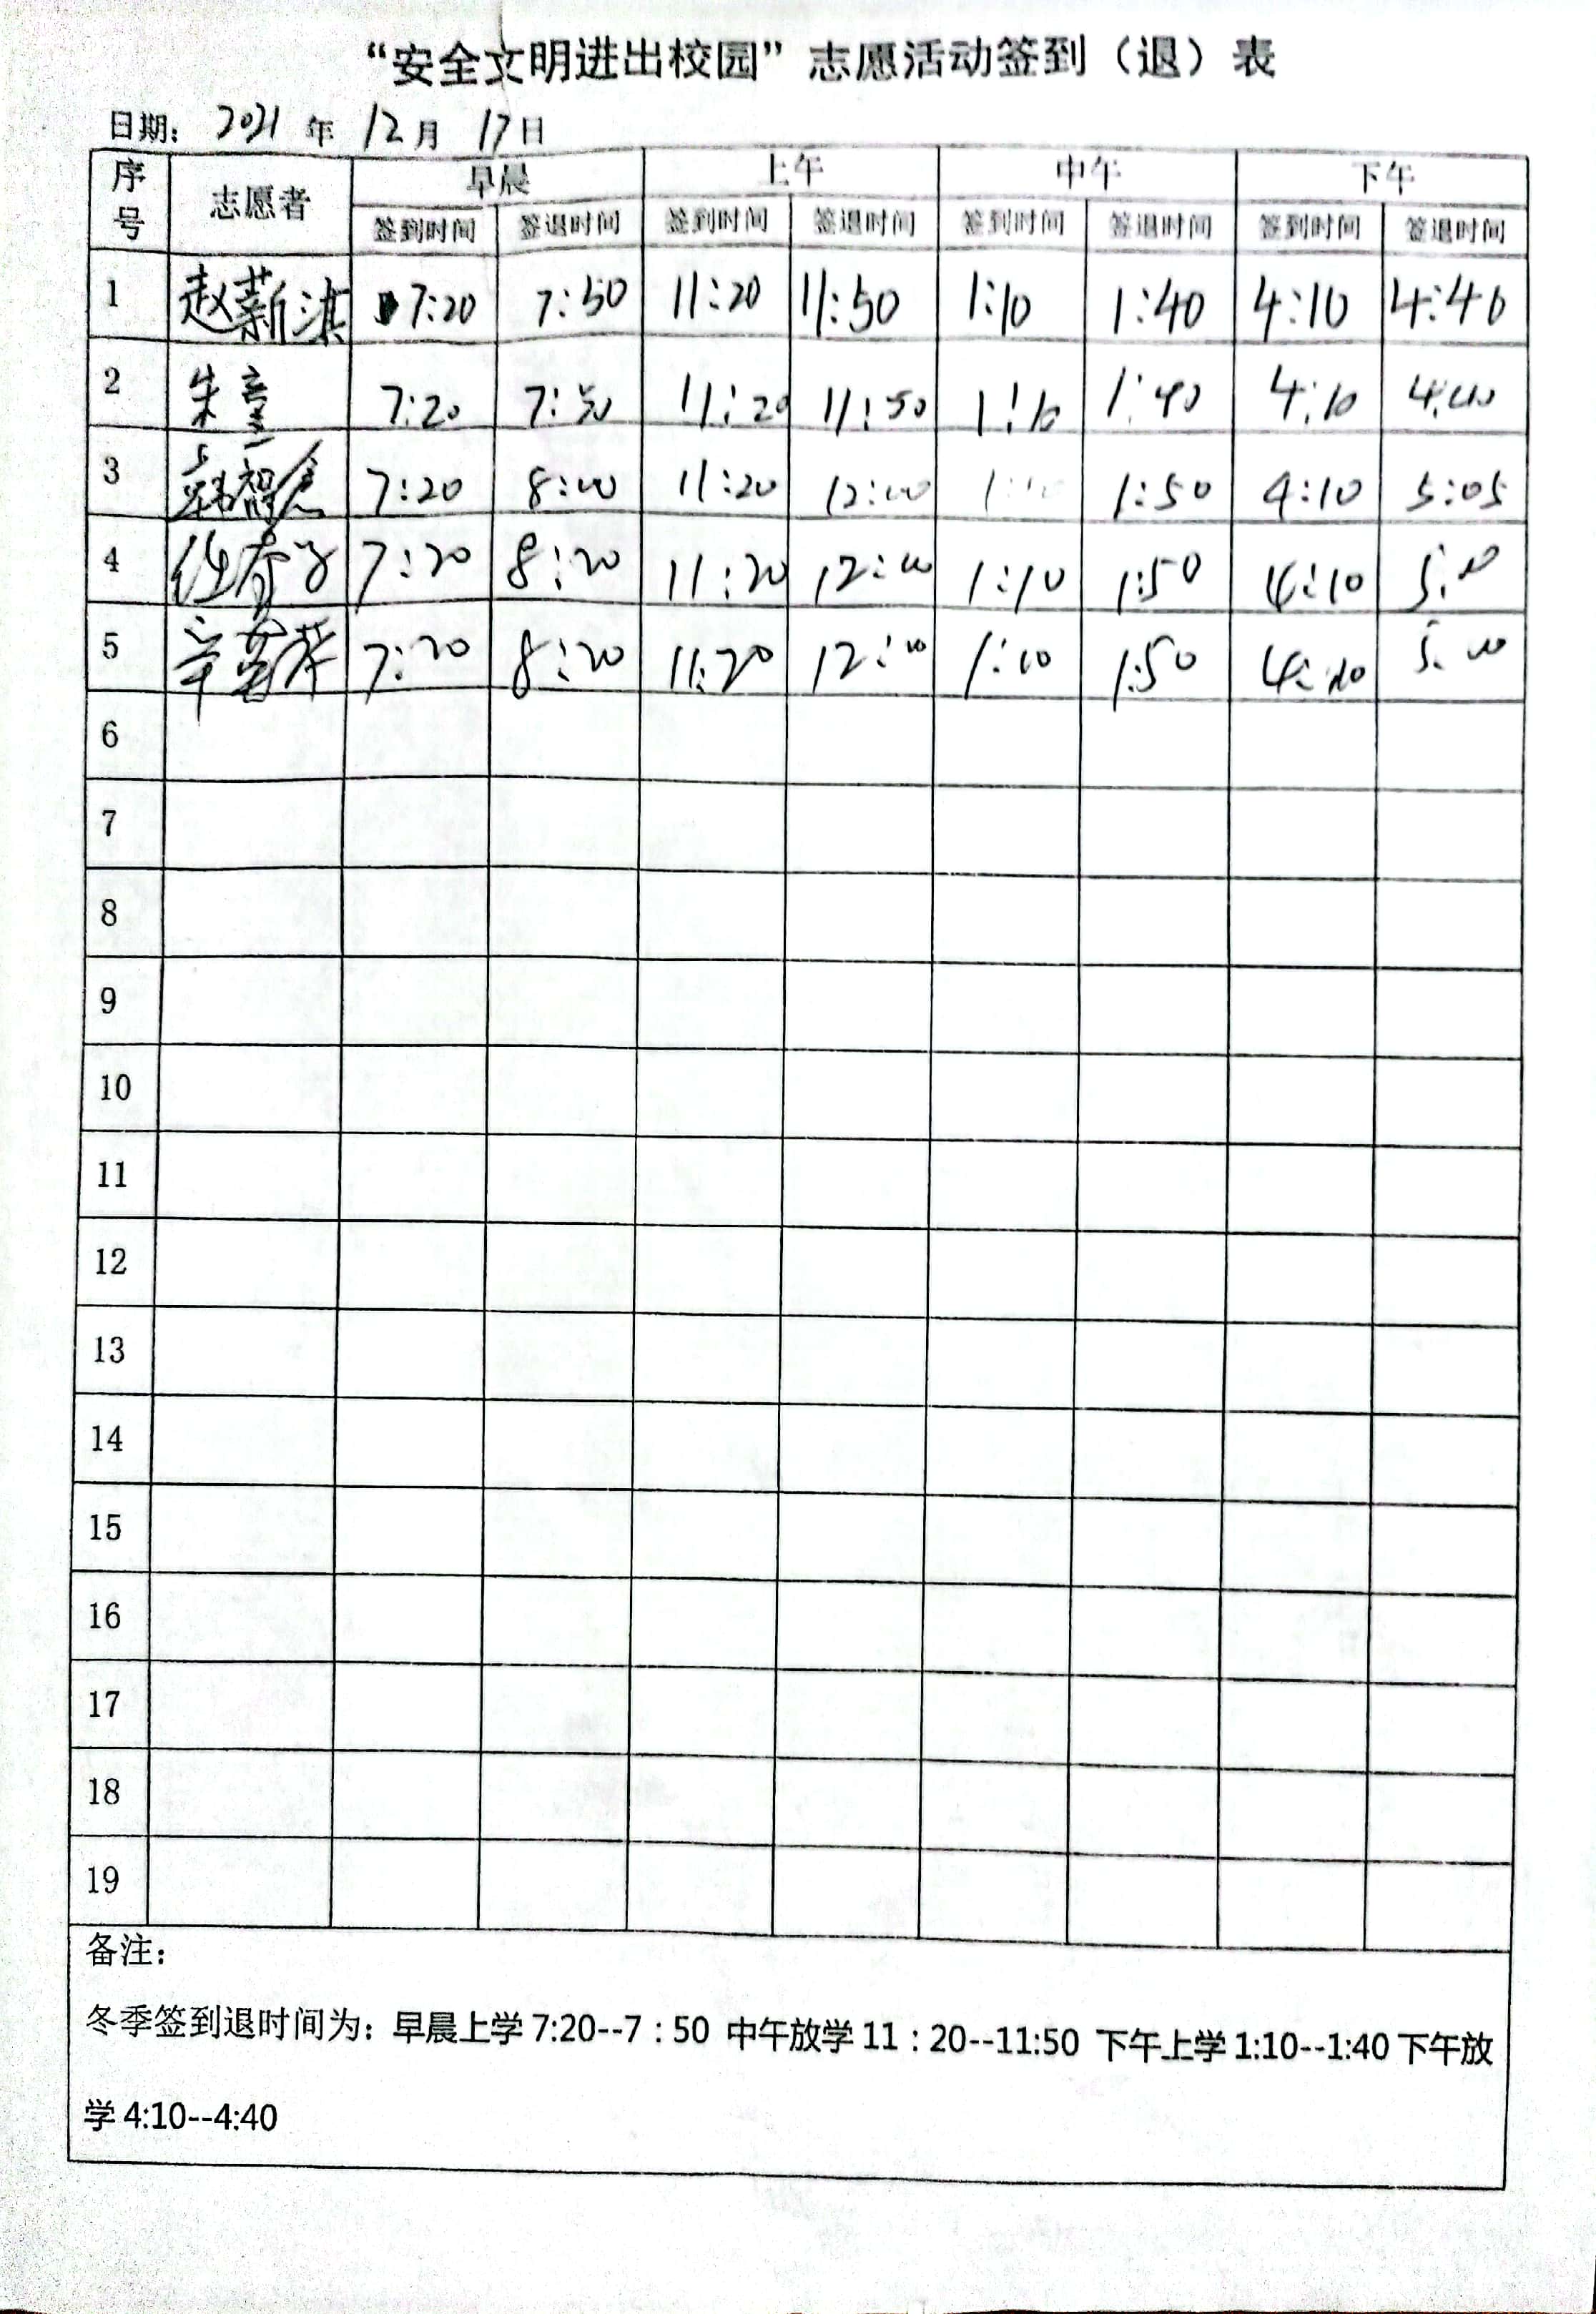 “安全文明进出校园”志愿活动签到（退）表
日期： 2021 年 12 月 17 日
序号 志愿者 早晨 上午 中午 下午
签到时间 签退时间 签到时间 签退时间 签到时间 签退时间 签到时间 签退时间
1 赵薪淇 7:20 7:50 11:20 11:50 1:10 1:40 4:10 4:40
2 朱童 7:20 7:50 11:20 11:50 1:10 1:40 4:10 4:40
3 7:20 8:00 11:20 12:00 1:10 1:50 4:10 5:05
4 7:20 8:20 11:20 12:00 1:10 1:50 4:10 5:00
5 7:20 8:20 11:20 12:00 1:10 1:50 4:10 5:00
6
7
8
9
10
11
12
13
14
15
16
17
18
19
备注：
冬季签到退时间为：早晨上学 7:20--7：50 中午放学 11：20--11:50 下午上学 1:10--1:40 下午放
学 4:10--4:40